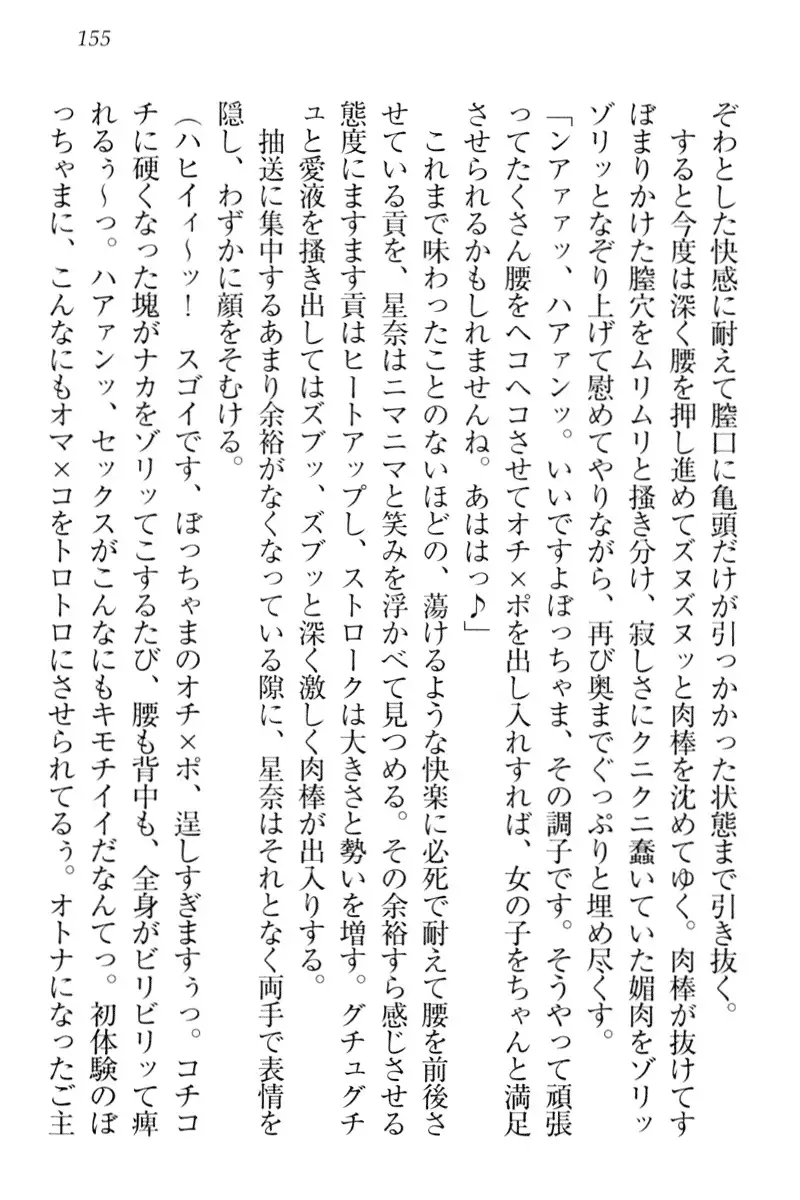 155
ぞわとした快感に耐えて膣口に亀頭だけが引っかかった状態まで引き抜く。
すると今度は深く腰を押し進めてズヌズヌッと肉棒を沈めてゆく。肉棒が抜けてす
ぼまりかけた膣穴をムリムリと掻き分け、寂しさにクニクニ蠢いていた媚肉をゾリッ
ゾリッとなぞり上げて慰めてやりながら、再び奥までぐっぷりと埋め尽くす。
「ンアァァッ、ハアァンッ。いいですよぼっちゃま、その調子です。そうやって頑張
ってたくさん腰をヘコヘコさせてオチ×ポを出し入れすれば、女の子をちゃんと満足
させられるかもしれませんね。あははっ♪」
これまで味わったことのないほどの、蕩けるような快楽に必死で耐えて腰を前後さ
せている貢を、星奈はニマニマと笑みを浮かべて見つめる。その余裕すら感じさせる
態度にますます貢はヒートアップし、ストロークは大きさと勢いを増す。グチュグチ
ュと愛液を掻き出してはズブッ、ズブッと深く激しく肉棒が出入りする。
抽送に集中するあまり余裕がなくなっている隙に、星奈はそれとなく両手で表情を
隠し、わずかに顔をそむける。
（ハヒイィ～ッ！　スゴイです、ぼっちゃまのオチ×ポ、逞しすぎますぅっ。コチコ
チに硬くなった塊がナカをゾリッてこするたび、腰も背中も、全身がビリビリッて痺
れるぅ～っ。ハアァンッ、セックスがこんなにもキモチイイだなんてっ。初体験のぼ
っちゃまに、こんなにもオマ×コをトロトロにさせられてるぅ。オトナになったご主